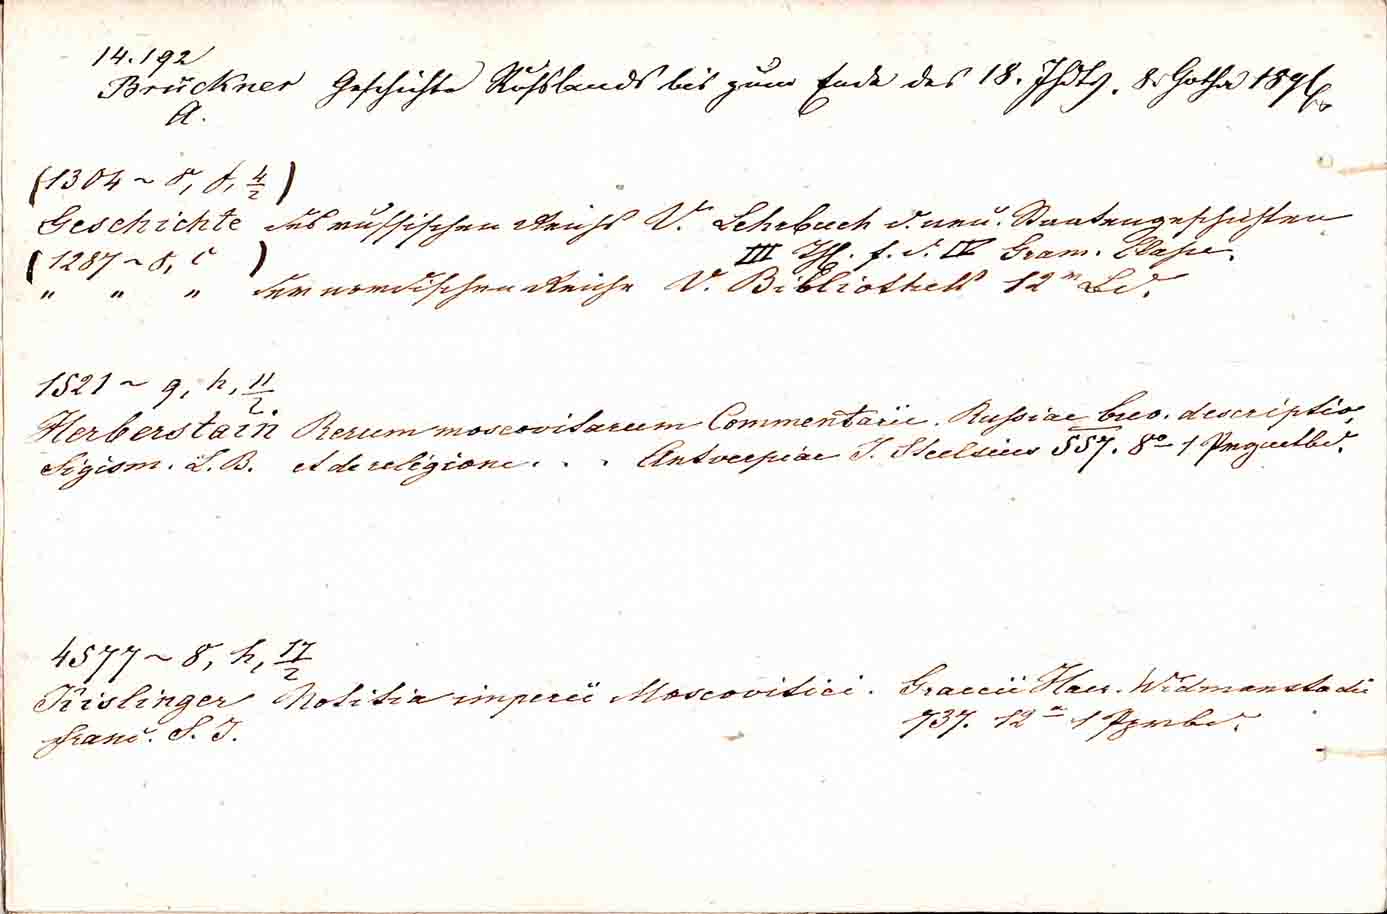 14.192
Brückner Geschichte Rußlands bis zum Ende des 18. Jhdts. 8. Gotha 1896
A.
(1304 ~ 8, f, 4/2)
Geschichte des russischen Reichs V. Lehrbuch d. neu. Staatengeschichten
III Thl. f. d. IV Gram. Classe.
(1287 ~ 8, c )
" " " der nordischen Reiche V. Bibliothek 12n Bd.
1521 ~ g, h, 11/2
Herberstain Rerum moscovitarum Commentarii. Russiae brev. descriptio,
Sigism. L. B. et de religione . . . Antverpiae J. Steelsius 557. 8o 1 Prgmtbd.
4577 ~ 8, h, 17/2
Kislinger Notitia imperii Moscovitici. Graecii Haer. Widmanstadii
Franc. S. J. 737. 12o 1 Pgmbd.